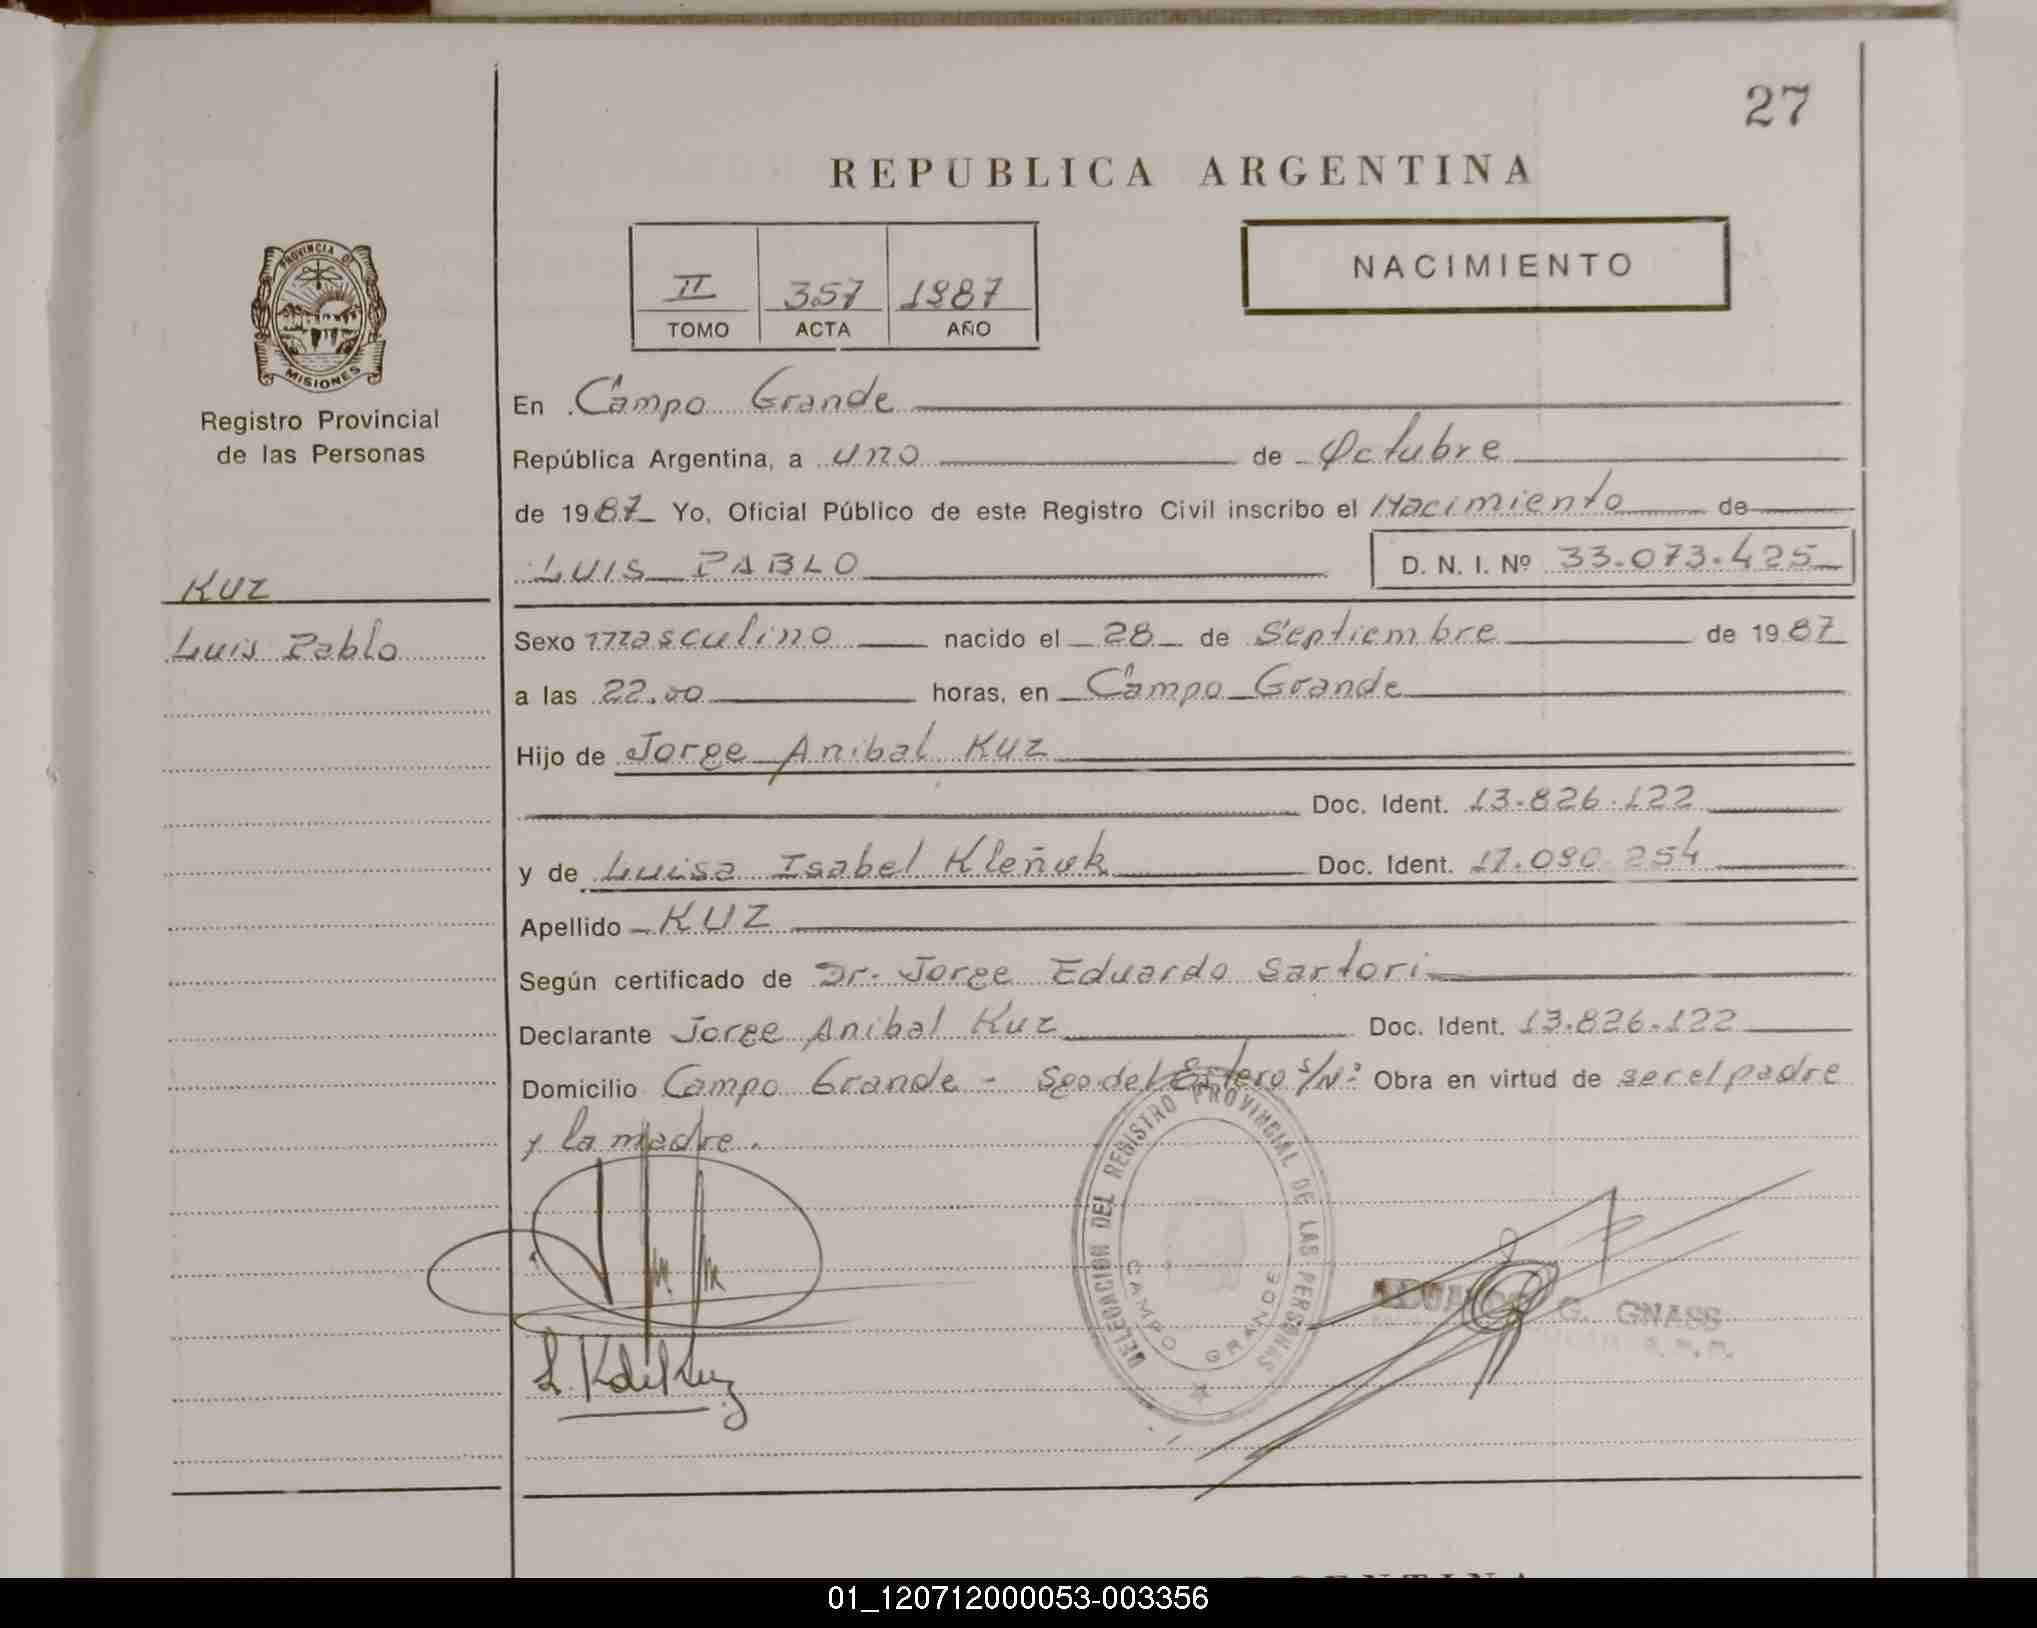 27
REPUBLICA ARGENTINA
II 357 1987
TOMO ACTA AÑO
NACIMIENTO
PROVINCIA DE
MISIONES
Registro Provincial
de las Personas
KUZ
Luis Pablo
En Campo Grande
República Argentina, a uno de Octubre
de 1987 Yo, Oficial Público de este Registro Civil inscribo el Nacimiento de
LUIS PABLO D. N. I. Nº 33.073.425
Sexo masculino nacido el 28 de Septiembre de 1987
a las 22.00 horas, en Campo Grande
Hijo de Jorge Anibal Kuz
Doc. Ident. 13.826.122
y de Luisa Isabel Kleñuk Doc. Ident. 17.090.254
Apellido KUZ
Según certificado de Dr. Jorge Eduardo Sartori
Declarante Jorge Anibal Kuz Doc. Ident. 13.826.122
Domicilio Campo Grande - Sgo del Estero S/Nº Obra en virtud de ser el padre
y la madre.
DELEGACION DEL REGISTRO PROVINCIAL DE LAS PERSONAS
CAMPO GRANDE
EDUARDO G. GNASS
01_120712000053-003356